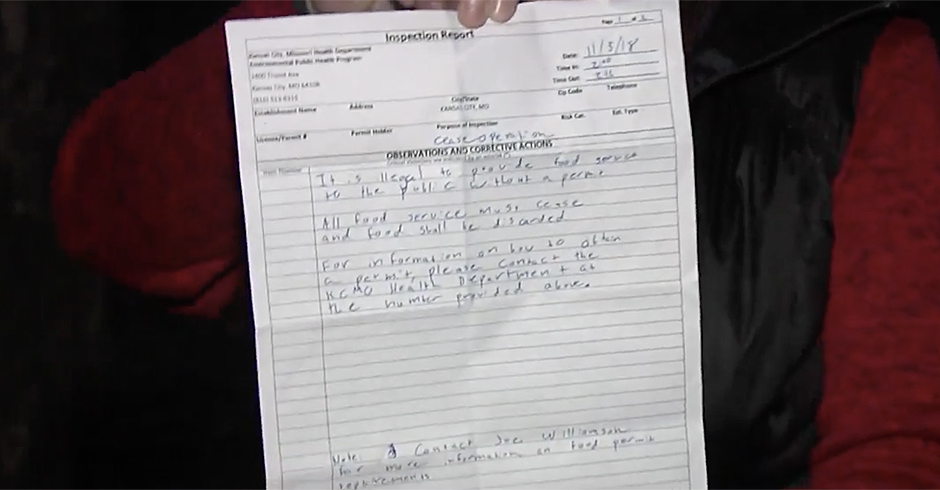 Page 1 of
Inspection Report
Kansas City, Missouri Health Department
Environmental Public Health Program
Date: 11/5/18
2400 Troost Ave
Time In:
Kansas City, MO 64108
Time Out:
(816) 513-6315
Zip Code Telephone
Establishment Name Address City/State
KANSAS CITY, MO
Risk Cat. Est. Type
License/Permit # Permit Holder Purpose of Inspection
cease operation
OBSERVATIONS AND CORRECTIVE ACTIONS
It is illegal to provide food service
to the public without a permit
All food service must cease
and food shall be discarded
For information on how to obtain
a permit please contact the
KCMO Health Department at
the number provided above.
Note: Contact Joe Williamson
for more information on food permit
requirements